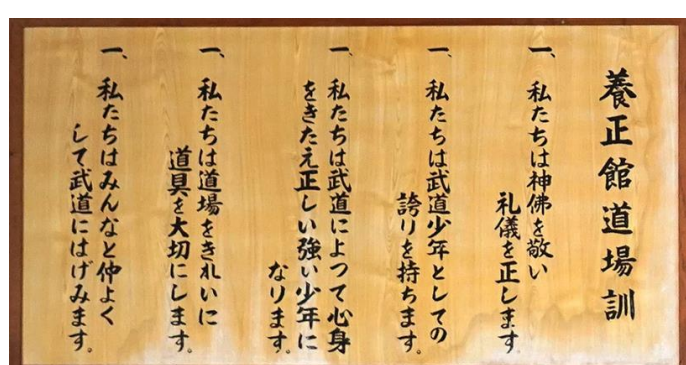 養正館道場訓
一、私たちは神佛を敬い
礼儀を正します
一、私たちは武道少年としての
誇りを持ちます。
一、私たちは武道によって心身
をきたえ正しい強い少年に
なります。
一、私たちは道場をきれいに
道具を大切にします。
一、私たちはみんなと仲よく
して武道にはげみます。